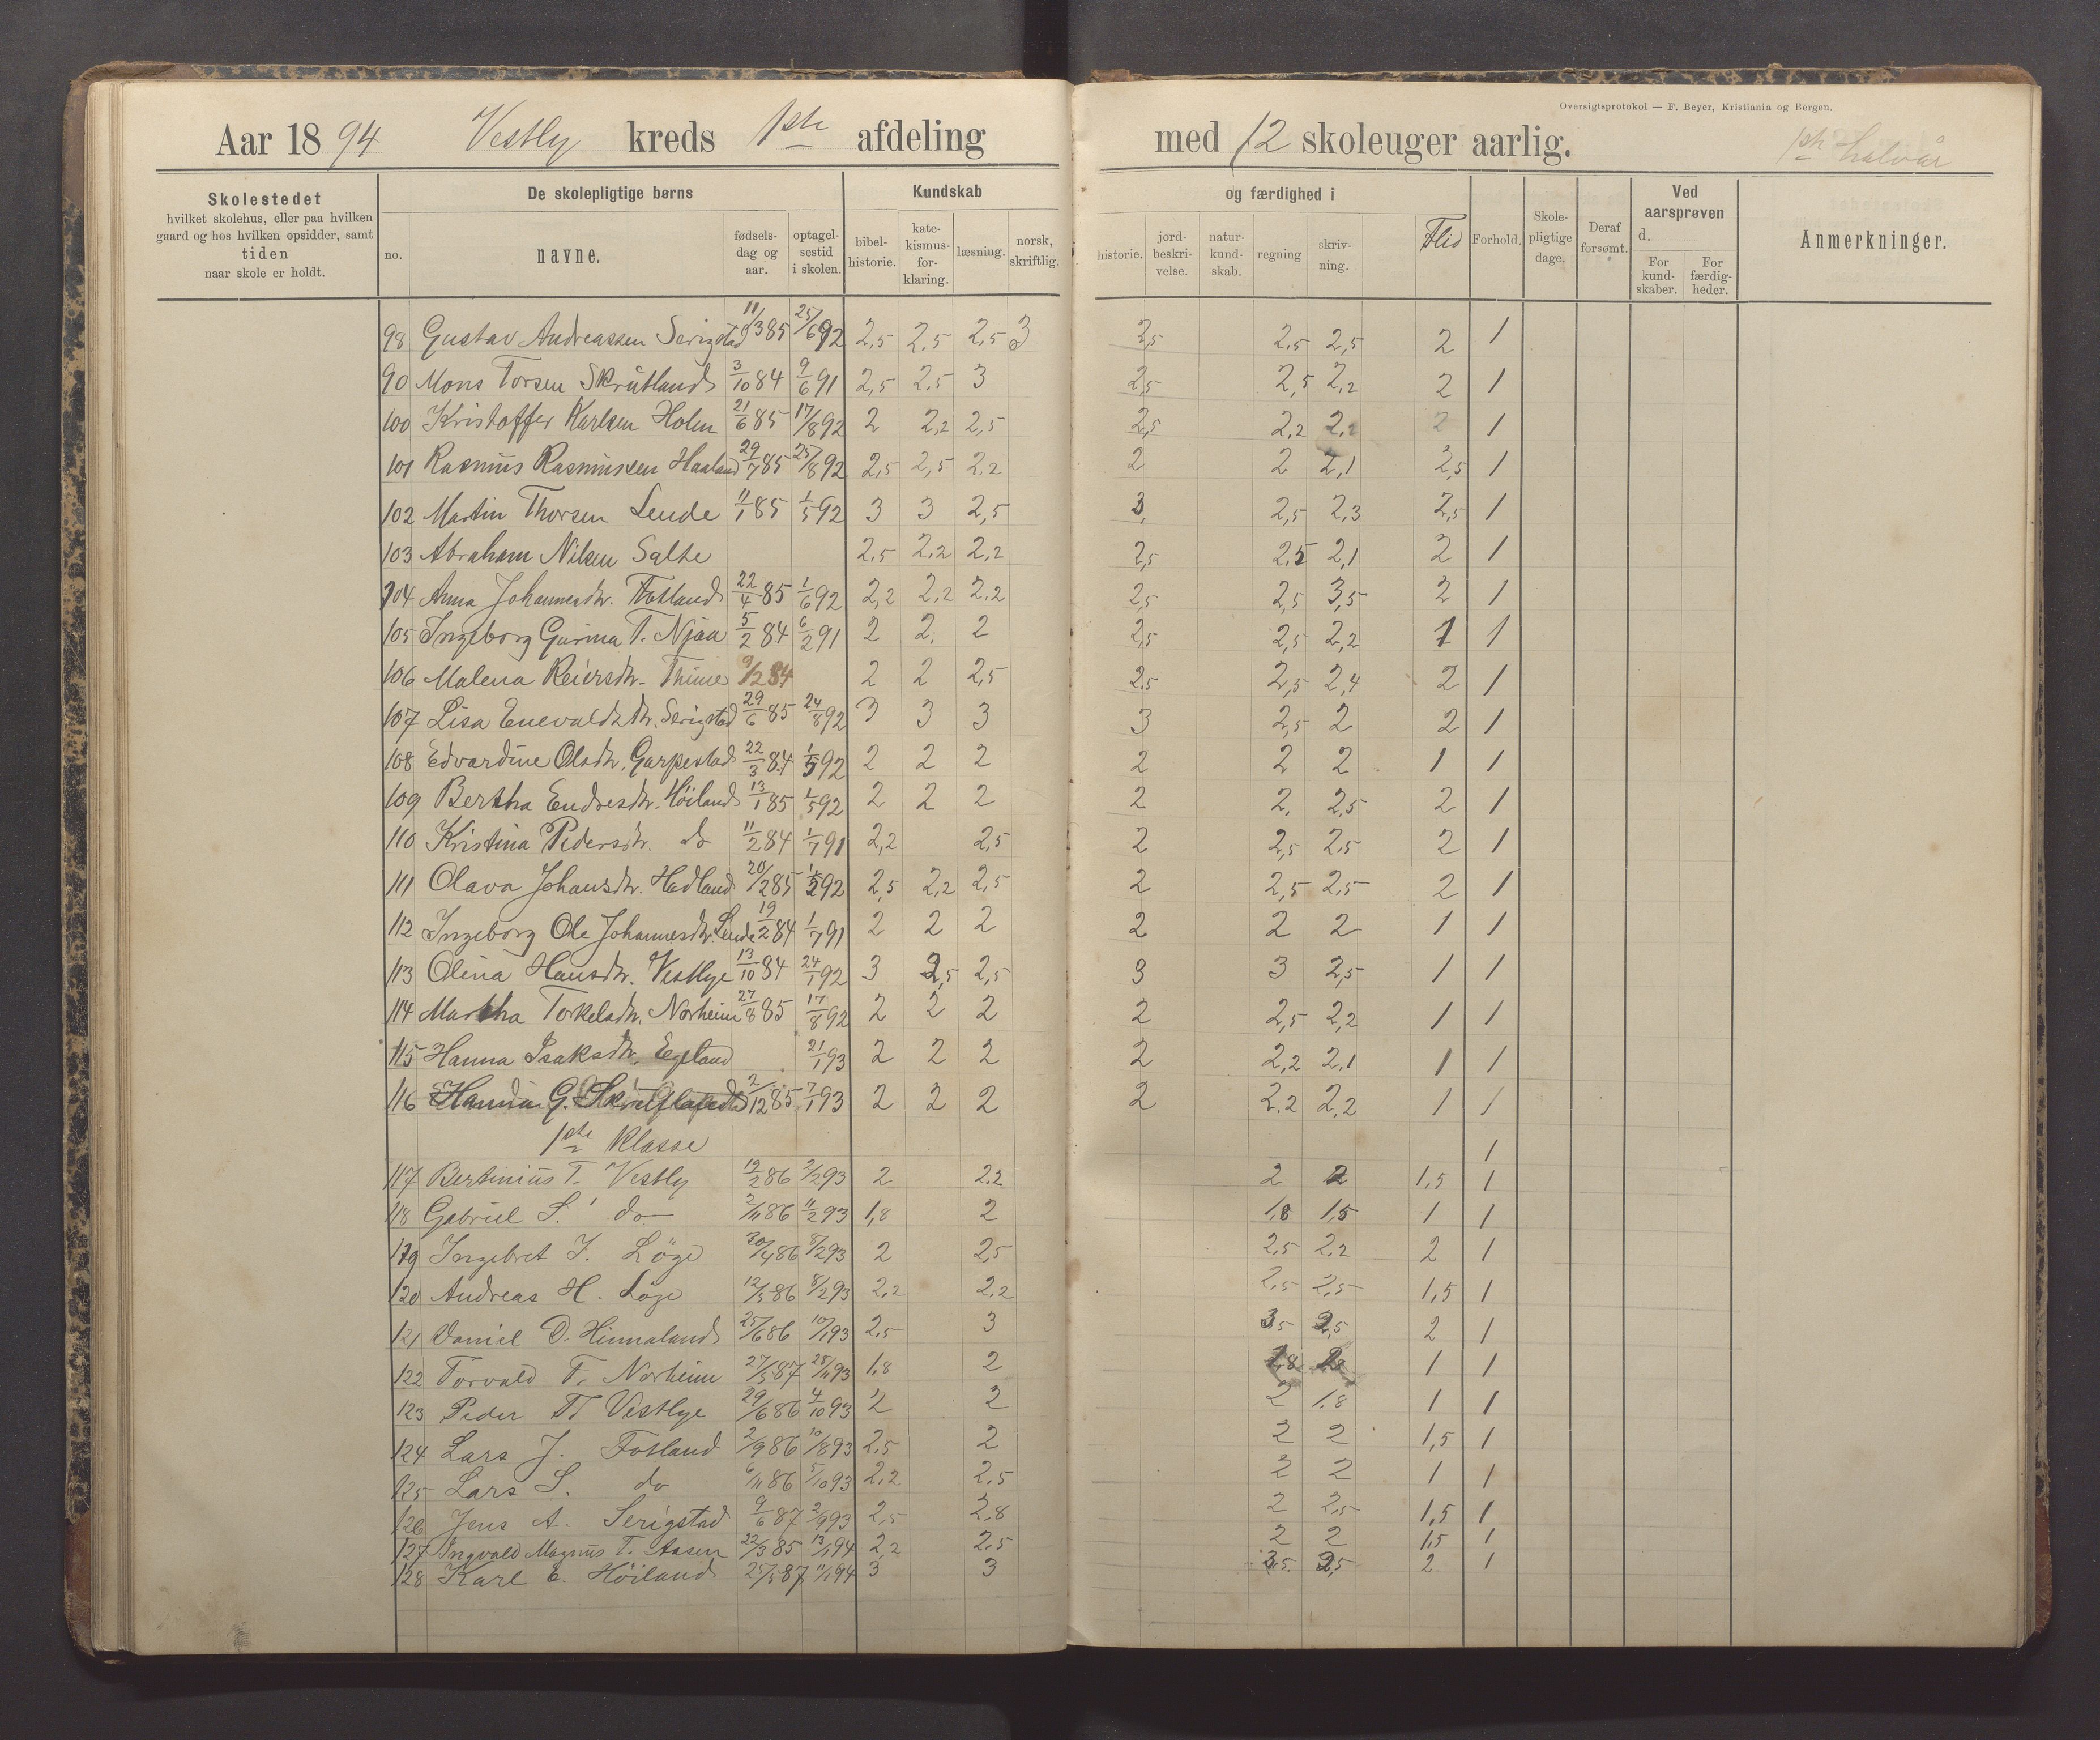 Oversigtsprotokol — F. Beyer, Kristiania og Bergen.
Aar 1894 Vestly kreds 1ste afdeling med 12 skoleuger aarlig. 1ste halvår
Skolestedet hvilket skolehus, eller paa hvilken gaard og hos hvilken opsidder, samt tiden naar skole er holdt.
De skolepligtige børns
no. navne. fødsels-dag og aar. optagel-sestid i skolen.
Kundskab og færdighed i
bibel-historie. kate-kismus-for-klaring. læsning. norsk, skriftlig. historie. jord-beskri-velse. natur-kund-skab. regning skriv-ning. Flid Forhold. Skole-pligtige dage. Deraf forsømt.
Ved aarsprøven d.
For kund-skaber. For færdig-heder.
Anmerkninger.
98 Gustav Andreassen Serigstad 11/3 85 25/6 92 2,5 2,5 2,5 3 2,5 2,5 2,5 2 1
90 Mons Torsen Skrutland 3/10 84 9/6 91 2,5 2,5 3 2,5 2,5 2,2 2 1
100 Kristoffer Karlsen Holm 21/6 85 17/8 92 2 2,2 2,5 2,5 2,2 2,2 2 1
101 Rasmus Rasmussen Haaland 29/7 85 25/8 92 2,5 2,5 2,2 2 2 2,1 2,5 1
102 Martin Thorsen Lende 11/1 85 1/5 92 3 3 2,5 3, 2,5 2,3 2,5 1
103 Abraham Nilsen Salte 2,5 2,2 2,2 2,5 2,5 2,1 2 1
104 Anna Johannesdtr. Fotland 22/4 85 1/6 92 2,2 2,2 2,2 2,5 2,5 3,5 2 1
105 Ingeborg Gurina T. Njaa 5/2 84 6/2 91 2 2, 2 2,5 2,5 2,2 1 1
106 Malena Reiersdtr. Thime 9/2 84 2 2 2,5 2,5 2,5 2,4 2 1
107 Lisa Enevaldsdtr. Serigstad 29/6 85 24/8 92 3 3 3 3 2,5 2 2 1
108 Edvardine Olsdtr. Garpestad 22/3 84 1/5 92 2 2 2 2 2 2 1 1
109 Bertha Endresdtr. Höiland 13/1 85 1/5 92 2 2 2 2 2, 2,5 2 1
110 Kristina Pedersdtr. do 11/2 84 1/7 91 2,2 2,5 2 2,5 2,5 2 1
111 Olava Johansdtr. Hadland 20/2 85 92 2,5 2,2 2,5 2 2,5 2,5 2 1
112 Ingeborg Ole Johannesdtr. Lende 19/2 84 1/7 91 2 2 2 2 2 2 1 1
113 Olina Hansdtr. Vestlye 13/10 84 24/1 92 3 2,5 2,5 3 3 2,5 1 1
114 Martha Torkelsdtr. Norheim 27/8 85 17/8 92 2 2 2 2 2,5 2,2 1 1
115 Hanna Isaksdtr. Egeland 21/1 93 2 2 2 2 2,2 2,1 1 1
116 Hanna G. 2/12 85 7/1 93 2 2 2 2 2,2 2,2 1 1
1ste Klasse 1
117 Bertinius T. Vestly 19/2 86 2/2 93 2 2,2 2 2 1,5 1
118 Gabriel S. do 2/11 86 11/2 93 1,8 2 1,8 1,5 1 1
119 Ingebret J. Löge 30/4 86 8/2 93 2 2,5 2,5 2,2 2 1
120 Andreas H. Löge 12/5 86 8/2 93 2,2 2,2 2,5 2,5 1,5 1
121 Daniel D. Hinnaland 25/6 86 10/1 93 2,5 3 3,5 2,5 2 1
122 Torvald T. Norheim 27/5 87 28/11 93 1,8 2 1,8 1 1
123 Peder T. Vestlye 29/6 86 4/10 93 2 2 2 1,8 1 1
124 Lars J. Fotland 2/9 86 10/8 93 2,5 2 2 2 1,5 1
125 Lars S. do 6/11 86 5/10 93 2,2 2,5 2 2 1 1
126 Jens A. Serigstad 9/6 87 2/9 93 2,5 2,8 2 2,5 1,5 1
127 Ingvald Magnus T. Aasen 22/3 85 13/1 94 2,2 2,5 2 2 1,5 1
128 Karl E. Höiland 25/5 87 11/1 94 3 3 3,5 2,5 2 1